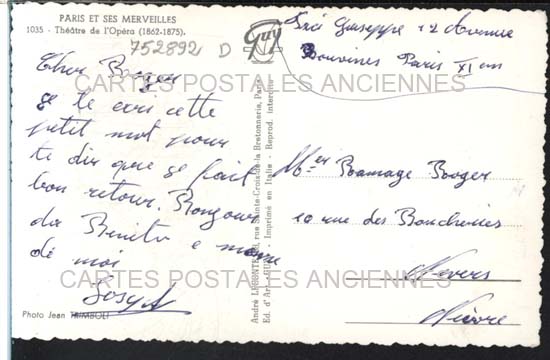 PARIS ET SES MERVEILLES
1035 - Théâtre de l'Opéra (1862-1875).
752892 D
Guy
Giuseppe 12 Avenue
Bouvines Paris XI em
Cher Roger
je te ecri cette
petit mot pour
te dir que je fait
bon retour. Bongour
da Benito e
de moi
Photo Jean TRIMBOLI
André LECONTE, 38, rue Sainte-Croix-de-la-Bretonnerie, Paris
Imprimé en Italie - Reprod. interdite
Ramage Roger
10 rue des Boucheries
Nevers
Nièvre
CARTES POSTALES ANCIENNES
CARTES POSTALES ANCIENNES